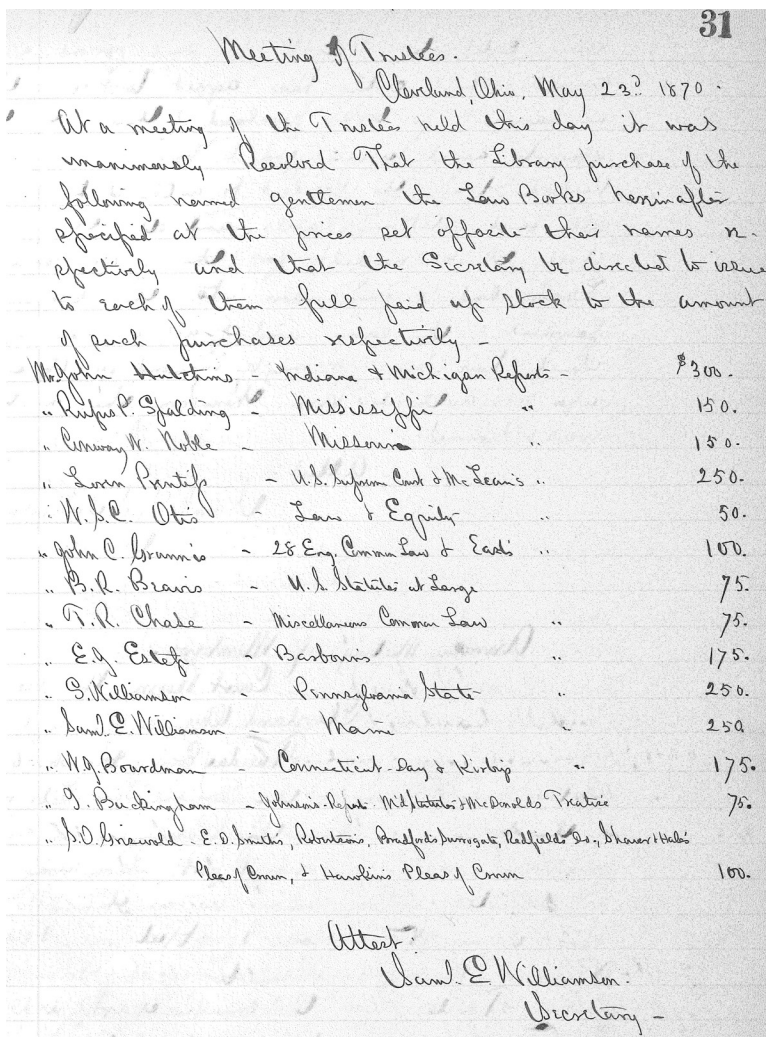 31
Meeting of Trustees.
Cleveland, Ohio, May 23d 1870.
At a meeting of the Trustees held this day it was
unanimously Resolved That the Library purchase of the
following named gentlemen the Law Books hereinafter
specified at the prices set opposite their names re-
spectively and that the Secretary be directed to issue
to each of them full paid up stock to the amount
of such purchases respectively -
Mr John Hutchins - Indiana & Michigan Reports - $300.
" Rufus P. Spalding - Mississippi " 150.
" Conway W. Noble - Missouri " 150.
" Loren Prentiss - U.S. Supreme Court & McLean's " 250.
" W.S.C. Otis - Law & Equity " 50.
" John C. Grannis - 28 Eng. Common Law & East's " 100.
" B.R. Beavis - U.S. Statutes at Large 75.
" T.R. Chase - Miscellaneous Common Law " 75.
" E.J. Estep - Barbours " 175.
" S. Williamson - Pennsylvania State " 250.
" Saml. E. Williamson - Maine " 250
" W.J. Boardman - Connecticut Day & Kirby " 175.
" G. Buckingham - Johnson's Report Md Statutes & McDonalds Treatise 75.
" S.O. Griswold - E.D. Smith's, Robertsons, Bradford's Surrogate, Redfields Do., &Hale's
Pleas of Crown, & Hawkins Pleas of Crown 100.
Attest.
Saml. E Williamson.
Secretary -